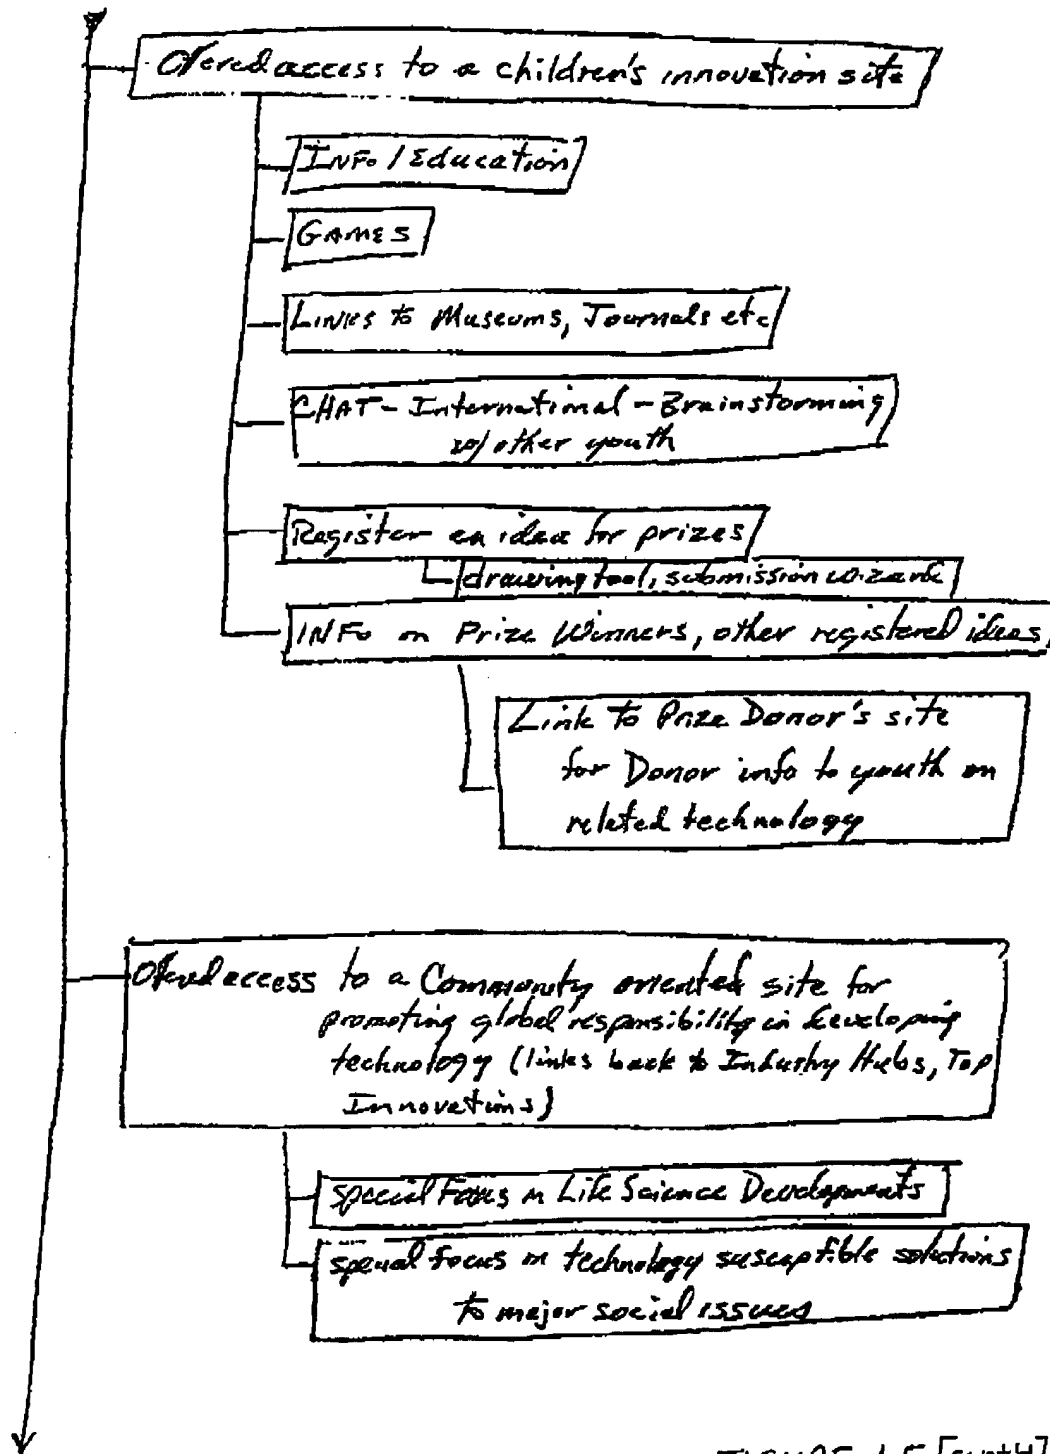 Offered access to a children's innovation site
INFO / Education
GAMES
Links to Museums, Journals etc
CHAT - International - Brainstorming
w/ other youth
Register an idea for prizes
drawing tool, submission wizard
INFO on Prize Winners, other registered ideas,
Link to Prize Donor's site
for Donor info to youth on
related technology
Offered access to a Community oriented site for
promoting global responsibility in developing
technology (links back to Industry Hubs, Top
Innovations)
special Focus on Life Science Developments
special focus on technology susceptible solutions
to major social issues